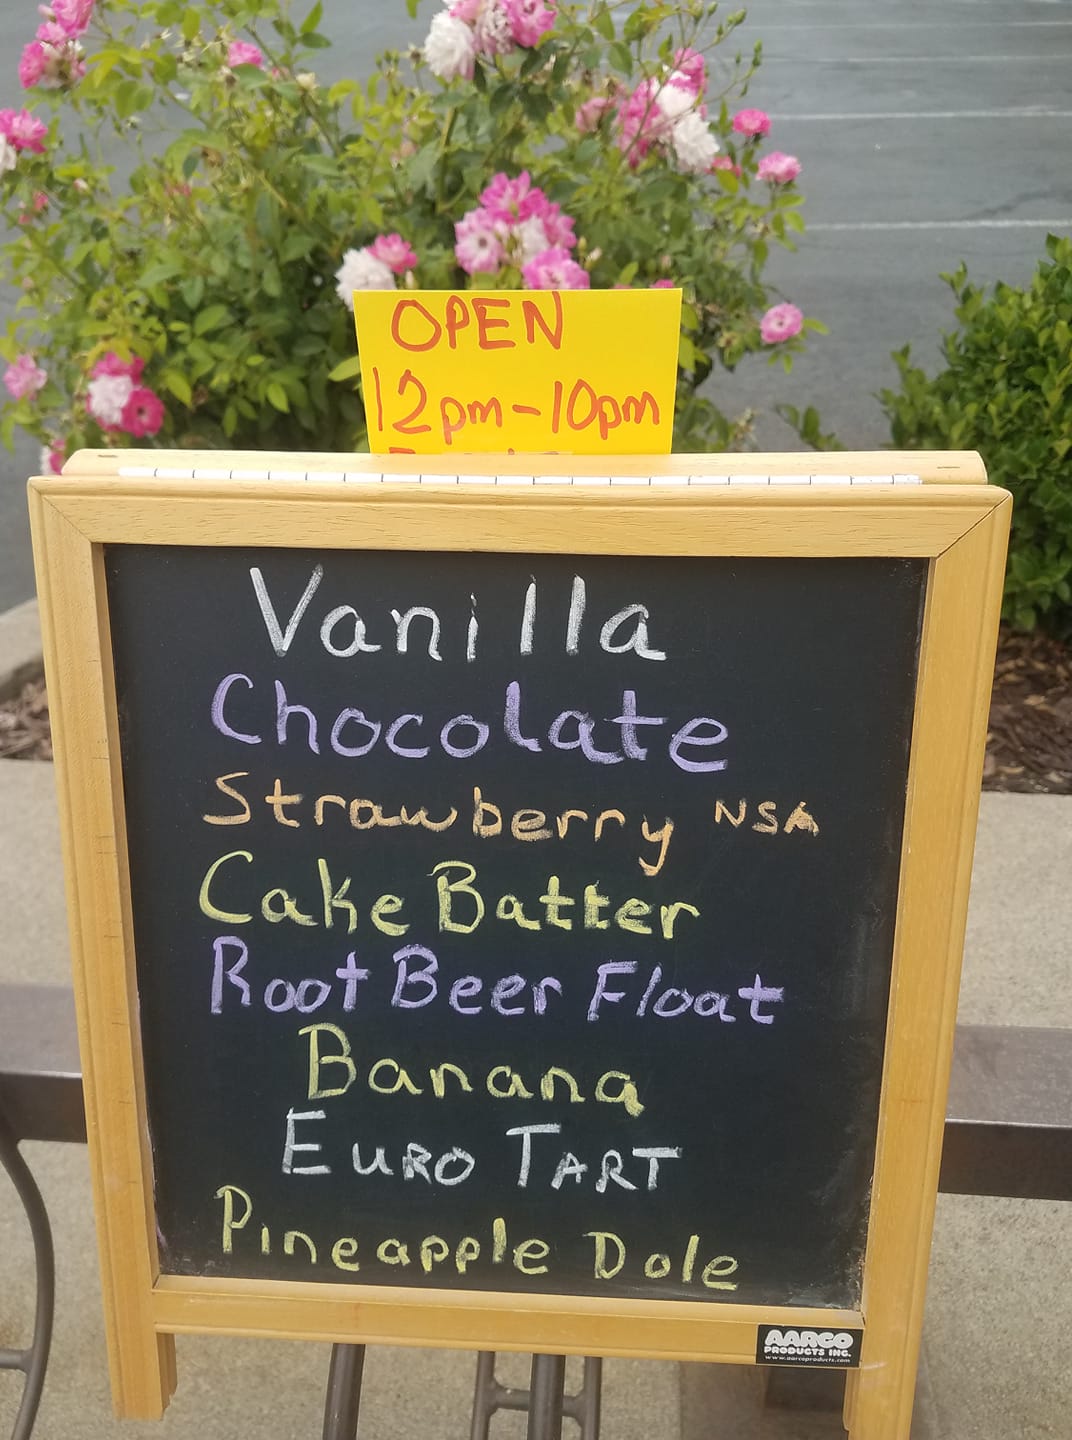 OPEN
12pm-10pm
Vanilla
Chocolate
Strawberry NSA
Cake Batter
Root Beer Float
Banana
EURO TART
Pineapple Dole
AARCO
PRODUCTS INC.
www.aarcoproducts.com